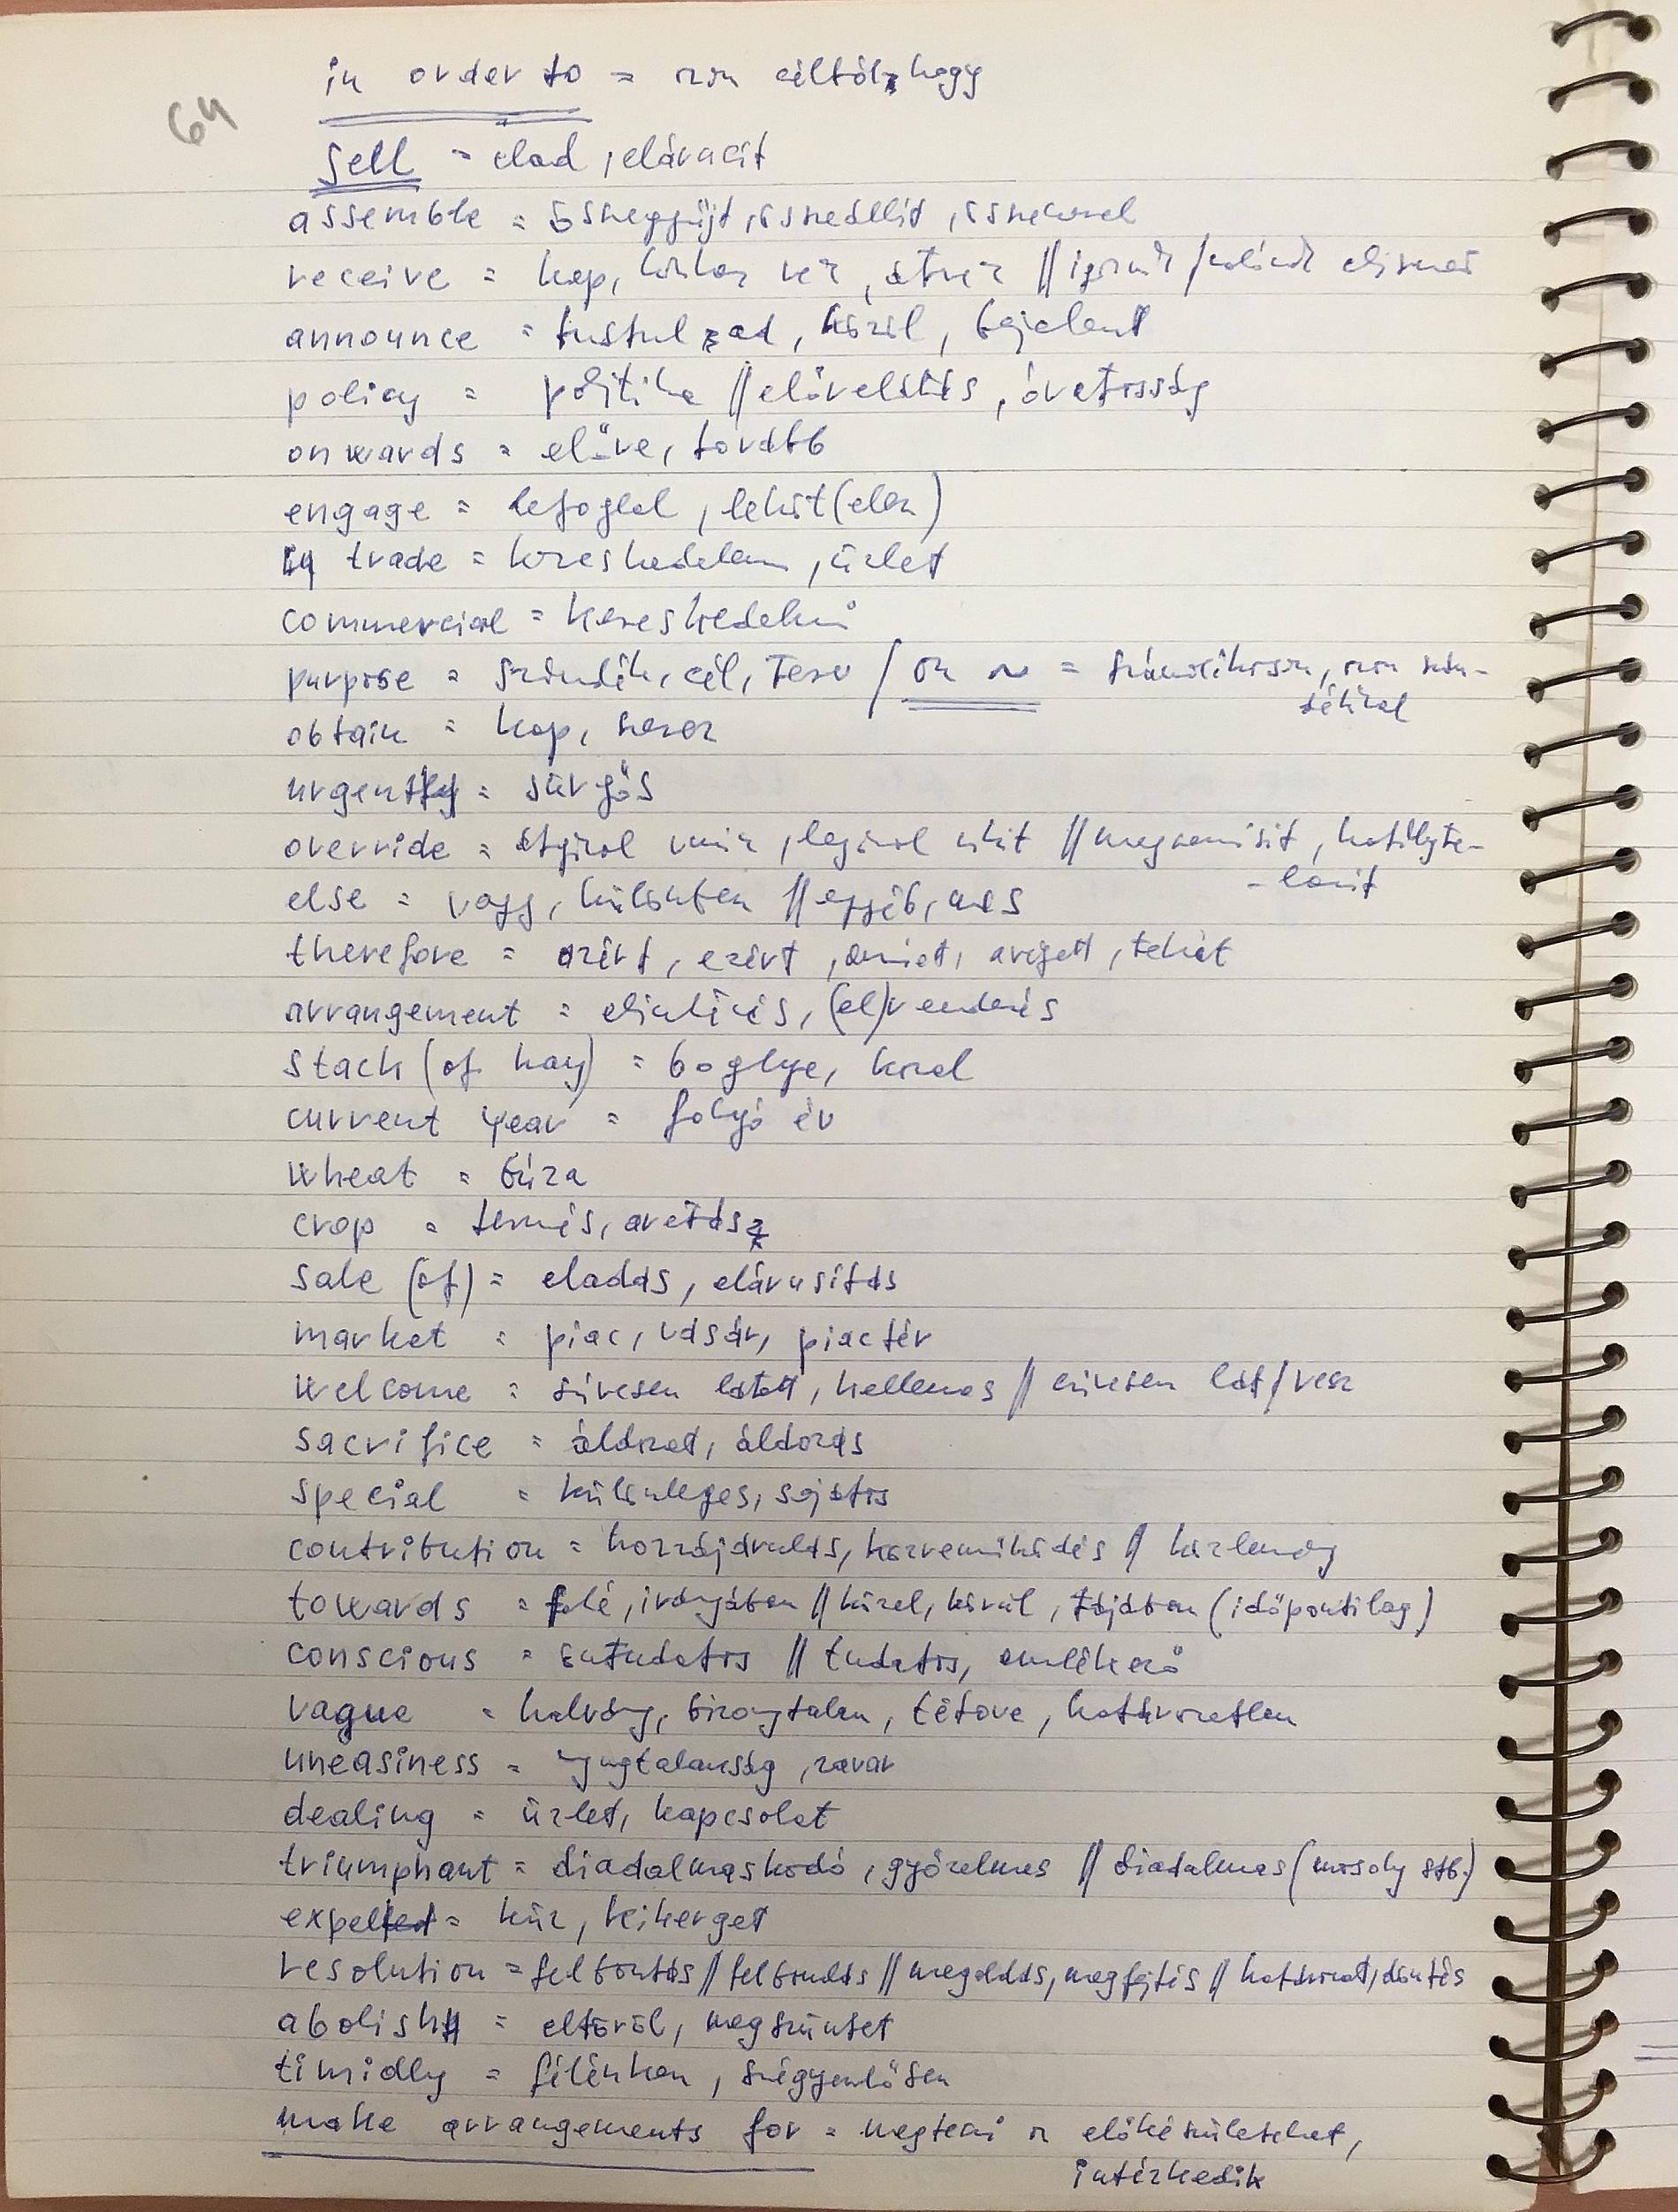 64
in order to = azon céltól, hogy
sell = elad, elárusít
assemble = összegyűjt, összeállít, összehoz
receive = kap, kézhez vesz, átvesz //
announce = tudtul ad, közöl, bejelent
policy = politika // előrelátás, óvatosság
onwards = előre, tovább
engage = lefoglal, leköt (elem)
trade = kereskedelem, üzlet
commercial = kereskedelmi
purpose = szándék, cél, terv / on ~ = szándékosan, azon szán-
dékkal
obtain = kap, szerez
urgent = sürgős
override = átgázol vmin, legázol vkit // megsemmisít, hatályta-
-lanít
else = vagy, különben // egyéb, más
therefore = azért, ezért, amiatt, avégett, tehát
arrangement = elintézés, (el)rendezés
stack (of hay) = boglya, kazal
current year = folyó év
wheat = búza
crop = termés, aratás
sale (of) = eladás, elárusítás
market = piac, vásár, piactér
welcome = szívesen látott, kellemes // szívesen lát/vesz
sacrifice = áldozat, áldozás
special = különleges, sajátos
contribution = hozzájárulás, közreműködés // közlemény
towards = felé, irányában // közel, körül, tájában (időpontilag)
conscious = öntudatos // tudatos, emlékező
vague = halvány, bizonytalan, tétova, határozatlan
uneasiness = nyugtalanság, zavar
dealing = üzlet, kapcsolat
triumphant = diadalmaskodó, győzelmes // diadalmas (mosoly stb.)
expel = kiűz, kikerget
resolution = felbontás // felbomlás // megoldás, megfejtés // határozat, döntés
abolish = eltöröl, megszüntet
timidly = félénken, szégyenlősen
make arrangements for = megteszi az előkészületeket,
intézkedik